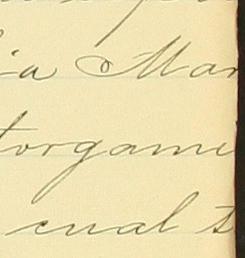 a Mar
torgame
cual t